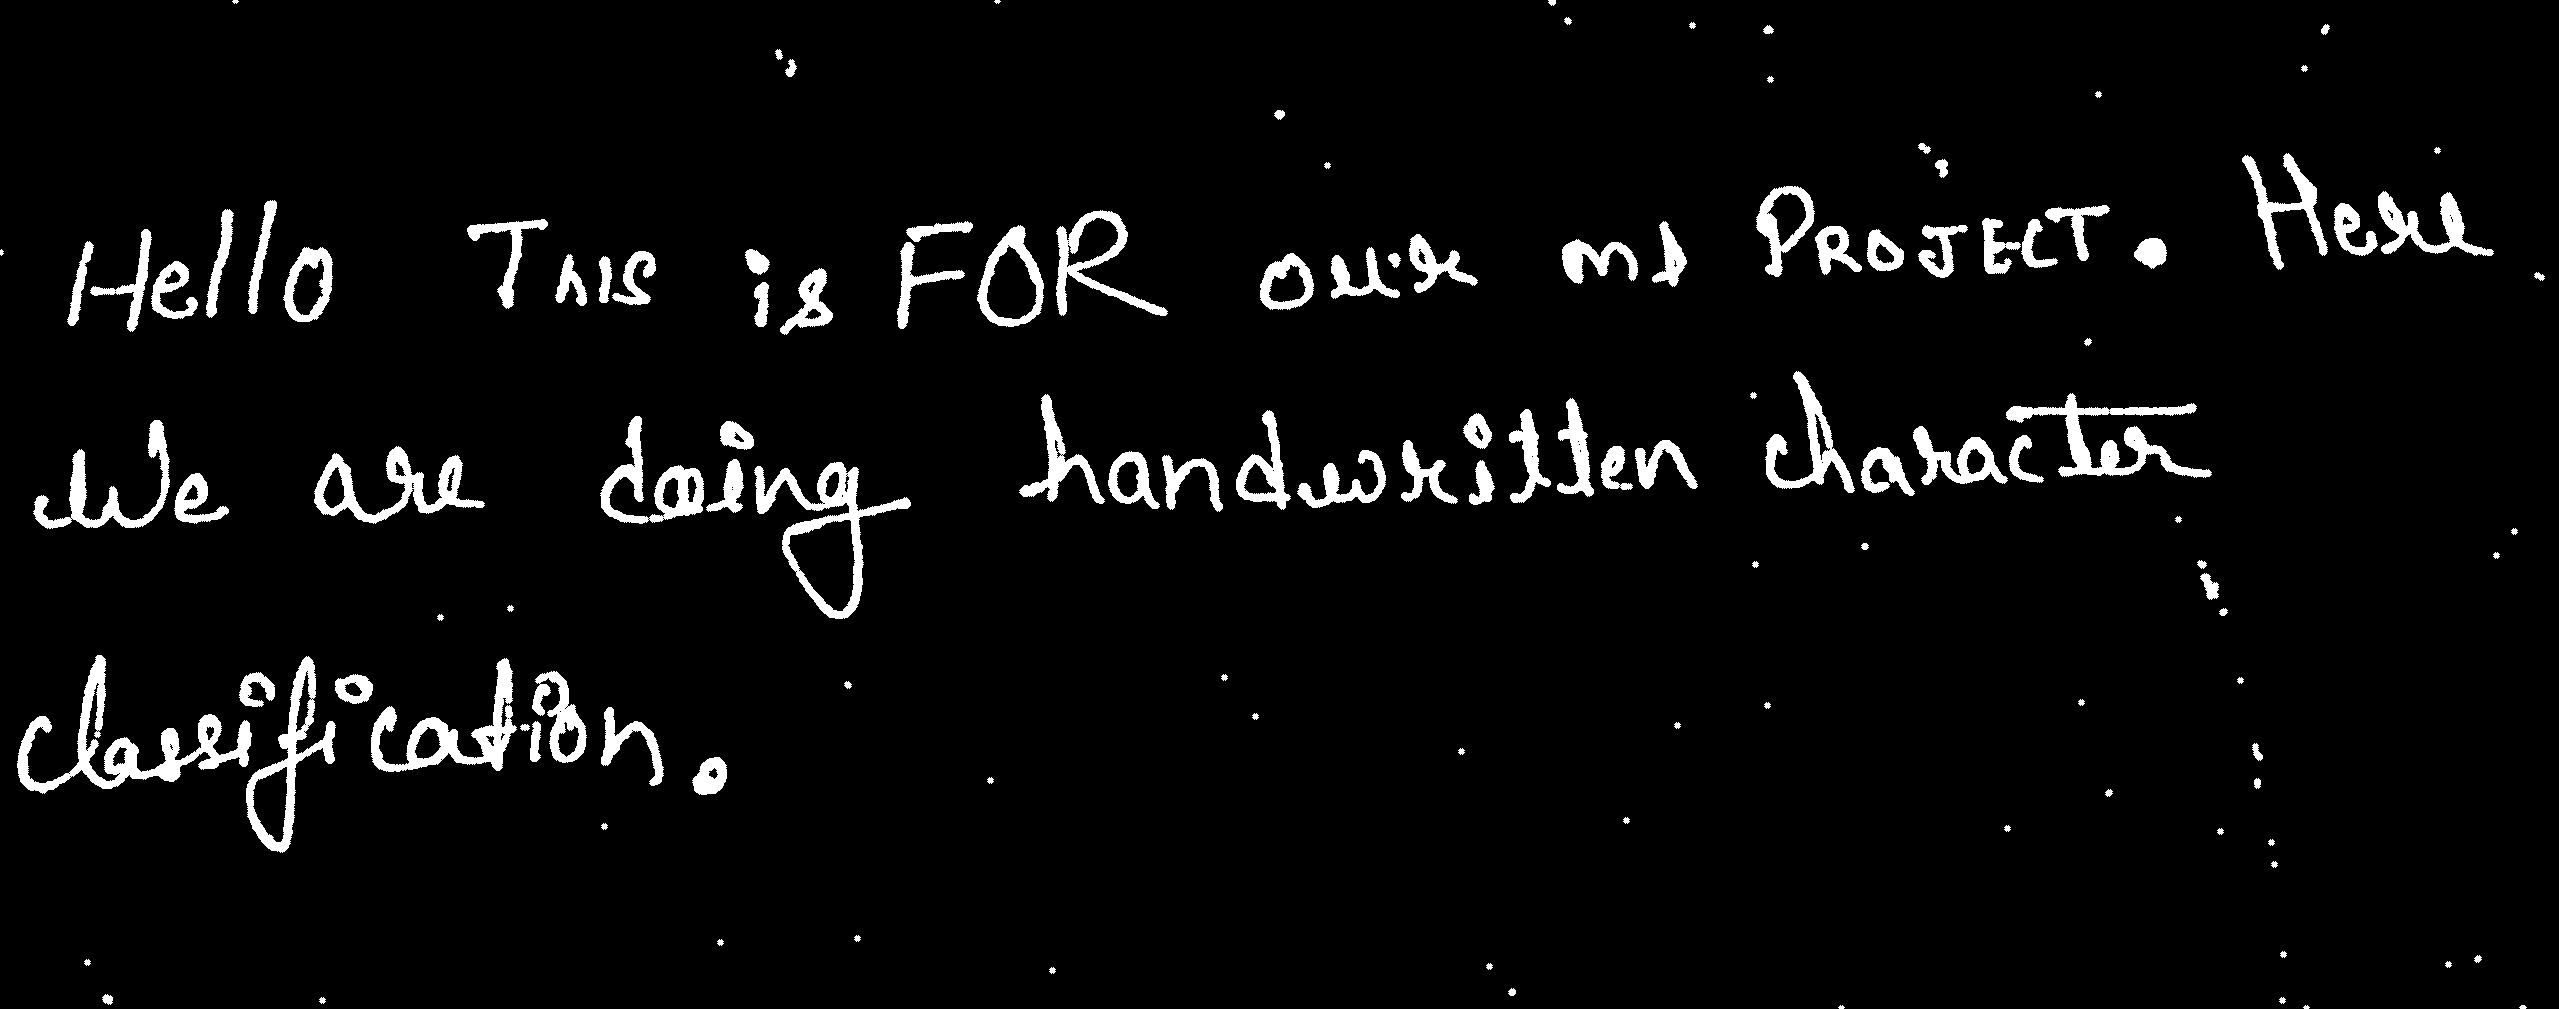 Hello THIS is FOR our ms PROJECT. Here
We are doing handwritten character
classification.